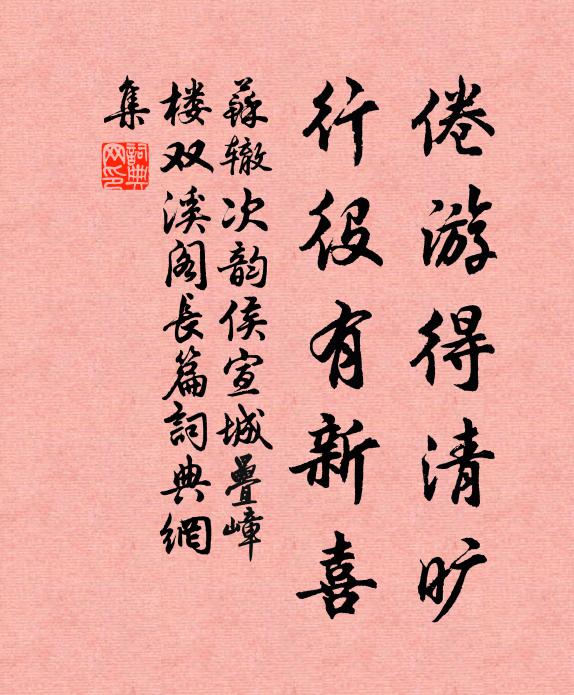 倦游得清旷
行役有新喜
蘇辙次韵侯宣城疊嶂
楼双溪阁長篇詞典網
集
詞典
网印